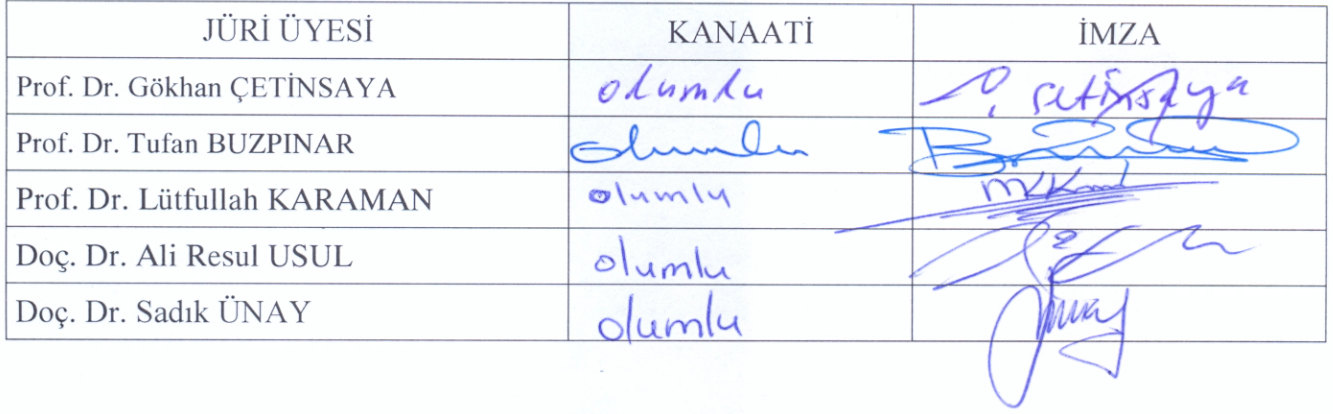 JÜRİ ÜYESİ KANAATİ İMZA
Prof. Dr. Gökhan ÇETİNSAYA olumlu Çetinsaya
Prof. Dr. Tufan BUZPINAR olumlu
Prof. Dr. Lütfullah KARAMAN olumlu
Doç. Dr. Ali Resul USUL olumlu
Doç. Dr. Sadık ÜNAY olumlu